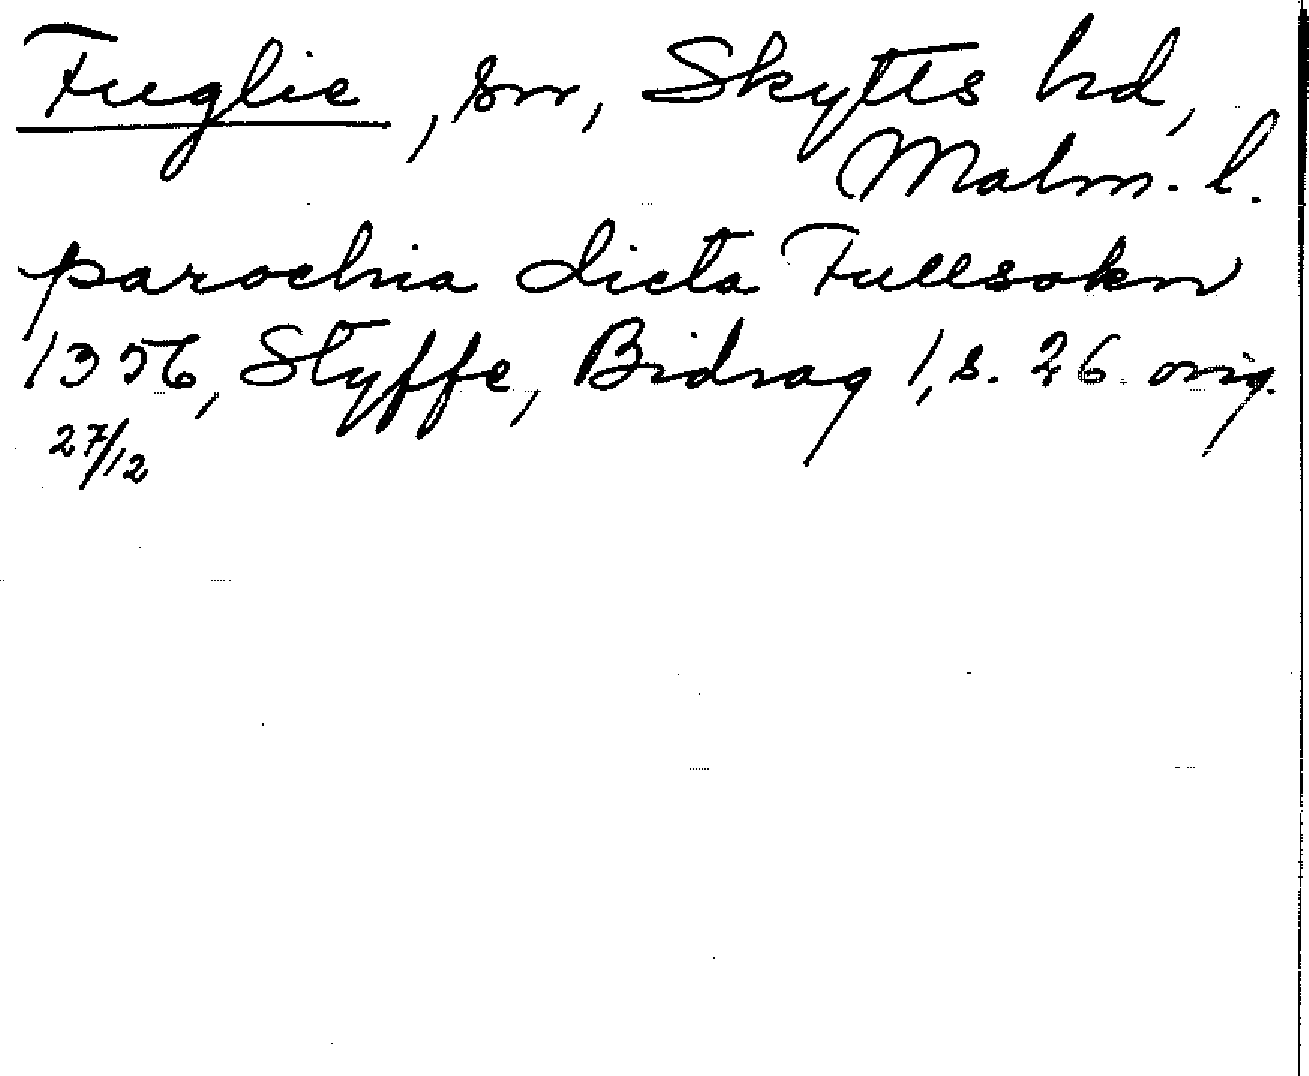 Fuglie, sn, Skytts hd,
Malm. l.
parochia dicta Fullsokn
1356, Styffe, Bidrag 1, s. 26 orig.
27/12